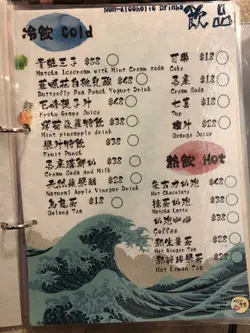 Non-Alcoholic Drinks
飲品
冷飲 Cold
青蛙王子 $58
Matcha Icecream with Mint Cream soda
$68
Butterfly Pea Peach Yogurt Drink
$48
Kyoto Grape Juice
薄荷菠蘿特飲 $38
Mint pineapple drink
果汁特飲 $38
Fruit Punch
$38
Cream Soda and Milk
天然蘋果醋 $28
Natural Apple Vinegar Drink
烏龍茶 $28
Oolong Tea
可樂 $18
Coke
忌廉 $18
Cream Soda
七喜 $18
7up
橙汁 $28
Orange Juice
熱飲 Hot
朱古力 $38
Hot Chocolate
抹茶 $38
Matcha Latte
咖啡 $38
Coffee
熱生薑茶 $38
Hot Ginger Tea
熱檸檬茶 $38
Hot Lemon Tea